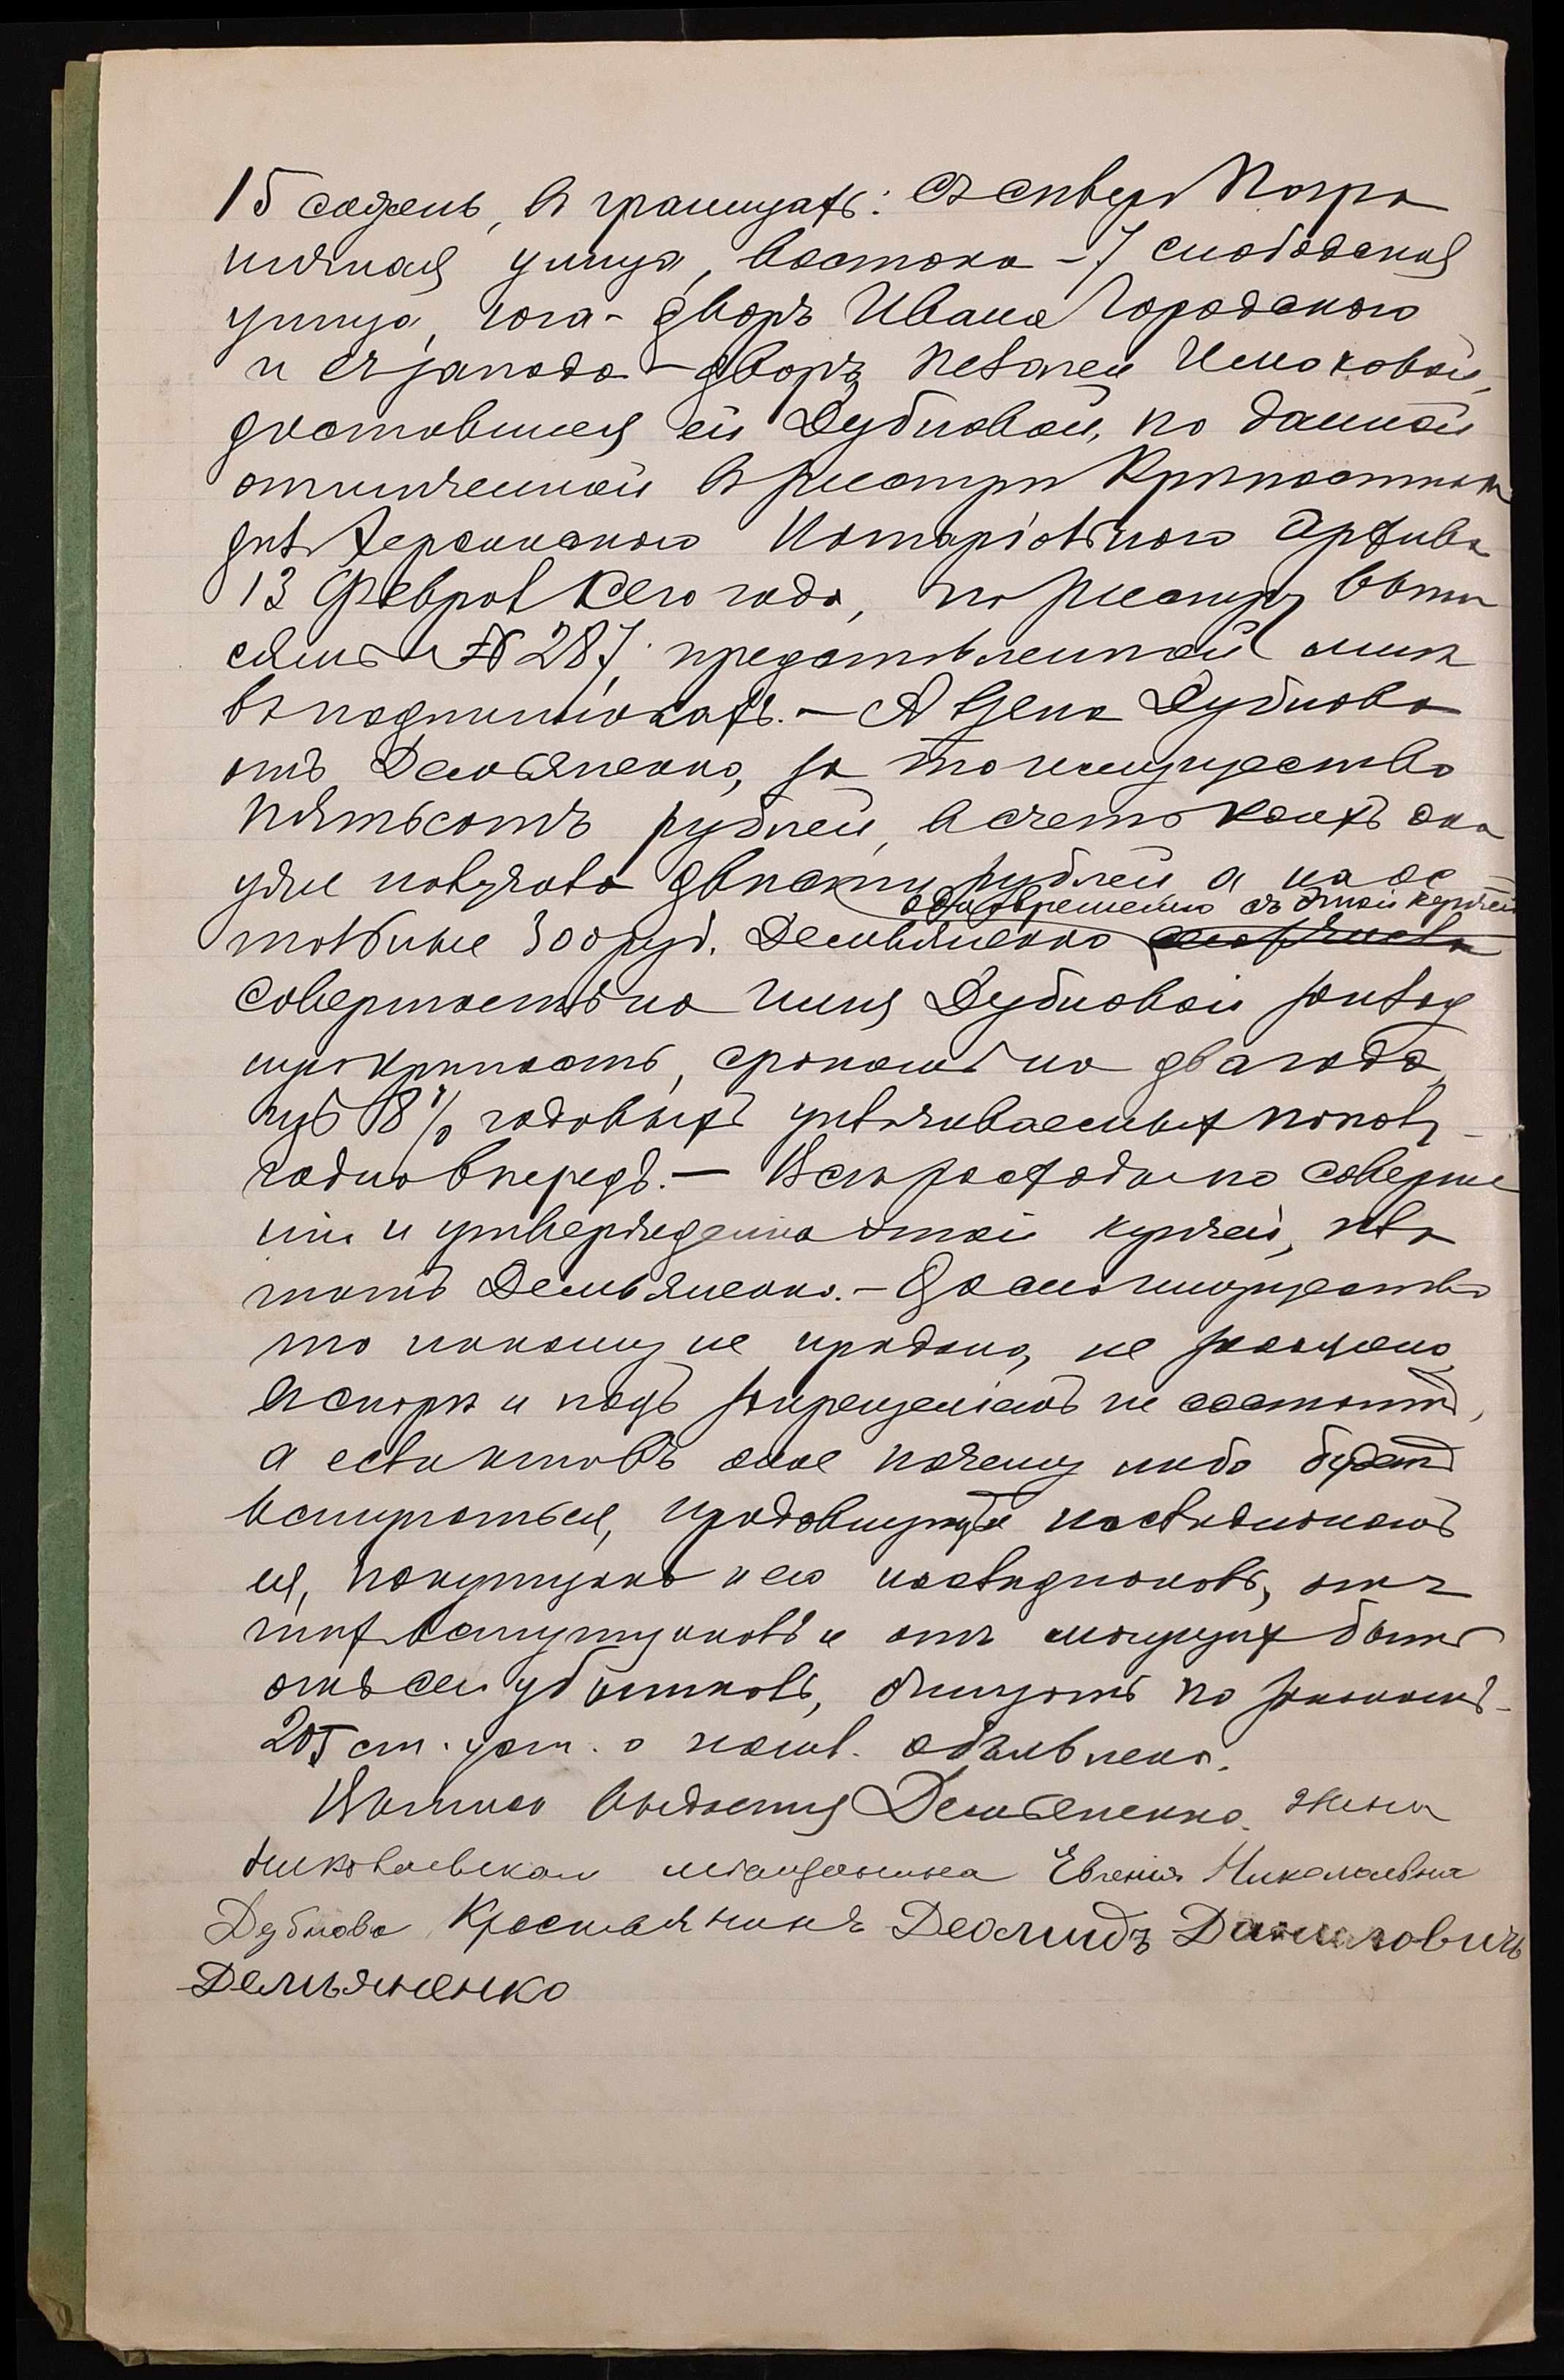 15 сажень, въ границахъ: съ севера Погра
ничная улица, востока – 7 слободская
улица, юга – дворъ Ивана Городского
и съ запада – дворъ Пелагеи
доставшееся ей Дубновой, по данной
отмеченной въ реестре Крепостныхъ
делъ Херсонскаго Нотаріальнаго Архива
13 Февраля сего года, по реестру
№ 287, представленной мне
въ подлинникахъ. – А взяла Дубнова
отъ Демьяненко, за то имущество
пятьсотъ рублей, въ счетъ коихъ она
уже получила двести рублей а на ос
одновременно съ этой купчей
тальные 300 руб. Демьяненко
совершаетъ на имя Дубновой заклад
ную крепость, срокомъ на два года
изъ 8% годовыхъ уплачиваемыхъ по полу
годно впередъ. – Все расходы по соверше
нію и утвержденію этой купчей, пла
титъ Демьяненко. – До сего имущество
то никому не продано, не заложено
въ споре и подъ запрещеніемъ не состоитъ,
а если кто въ оное почему либо будетъ
вступаться, продавцу и наследникамъ
ея, покупщика и его наследниковъ, отъ
техъ вступщиковъ и отъ могущихъ быть
отъ сего убытковъ, очищать по законамъ
205 ст. уст. о пошл. объявлена.
Выпись выдается Демьяненко.
Николаевская мещанка Евгенія Николаевна
Дубнова Крестьянинъ Леонидъ Даниловичъ
Демьяненко